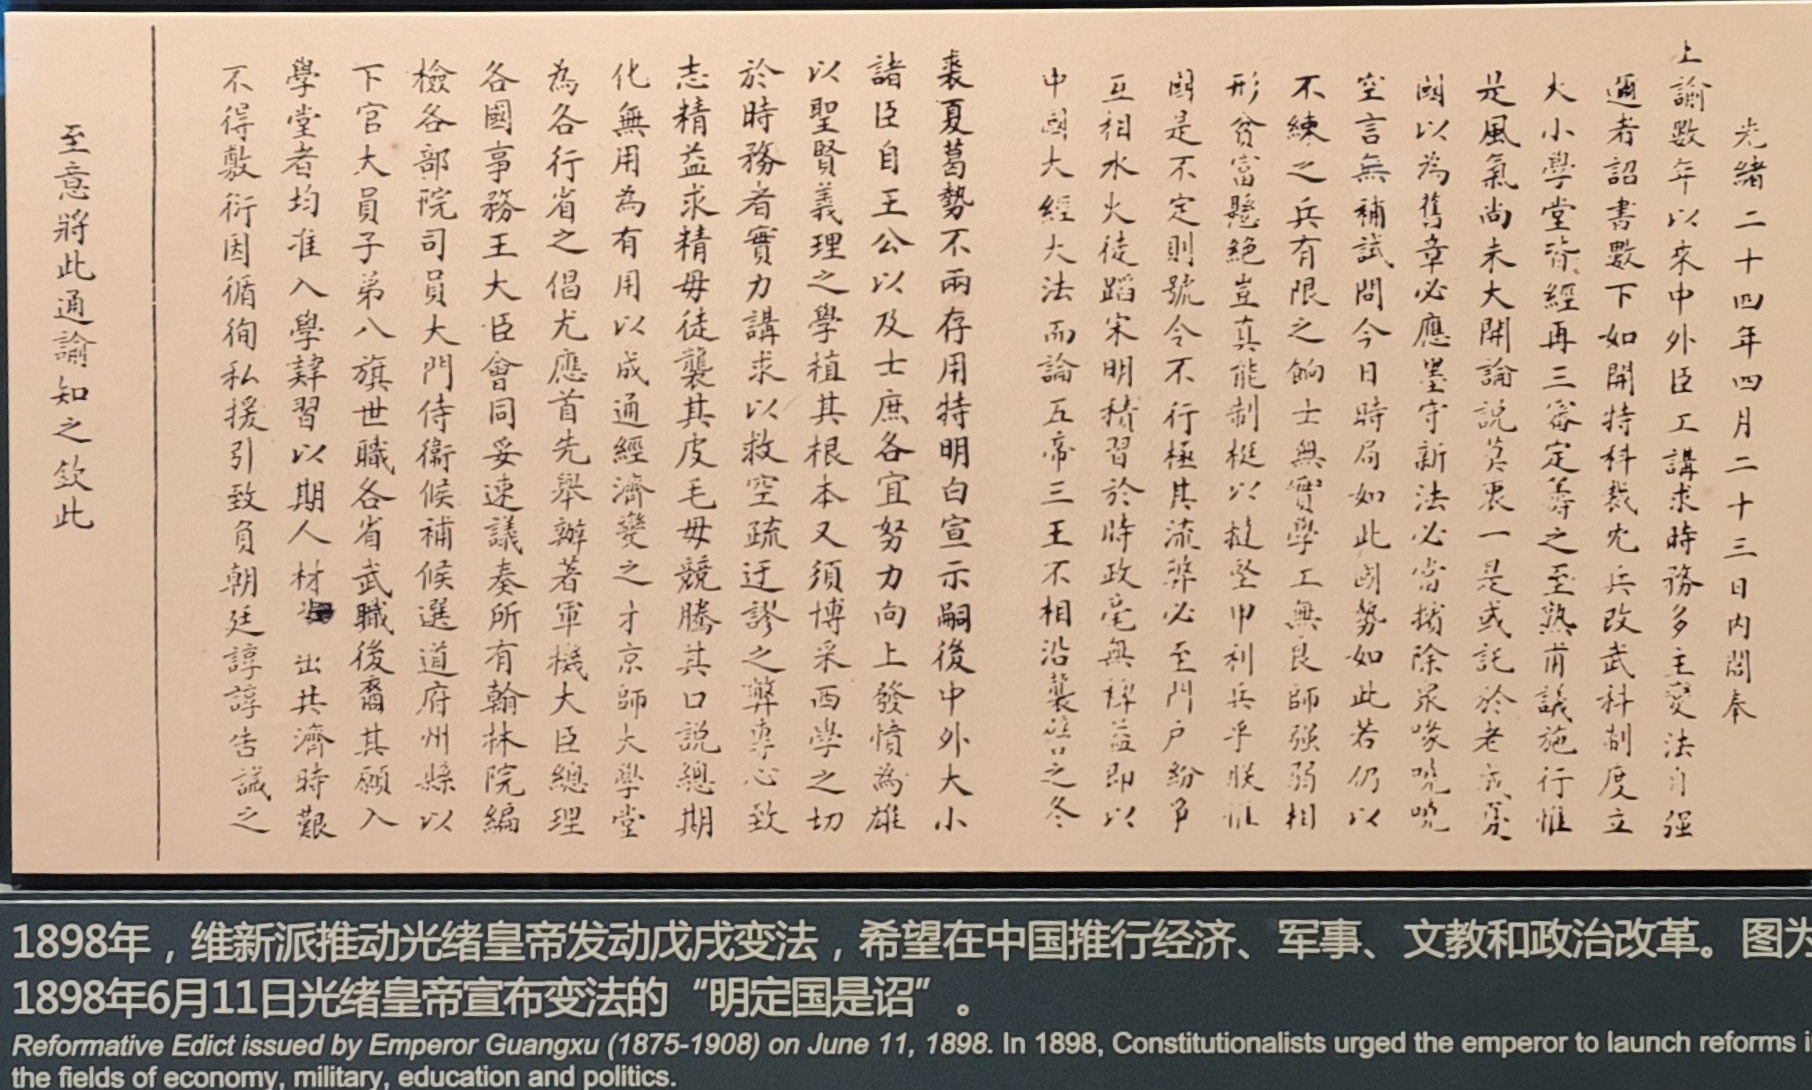 光緒二十四年四月二十三日內閣奉
上諭數年以來中外臣工講求時務多主變法自强
邇者詔書數下如開特科裁冗兵改武科制度立
大小學堂皆經再三審定籌之至熟甫議施行惟
是風氣尚未大開論說莫衷一是或託於老成憂
國以為舊章必應墨守新法必當擯除眾喙嘵嘵
空言無補試問今日時局如此國勢如此若仍以
不練之兵有限之餉士無實學工無良師强弱相
形貧富懸絕豈真能制梃以撻堅甲利兵乎朕惟
國是不定則號令不行極其流弊必至門戶紛爭
互相水火徒蹈宋明積習於時政毫無裨益即以
中國大經大法而論五帝三王不相沿襲譬之冬
裘夏葛勢不兩存用特明白宣示嗣後中外大小
諸臣自王公以及士庶各宜努力向上發憤為雄
以聖賢義理之學植其根本又須博采西學之切
於時務者實力講求以救空疏迂謬之弊專心致
志精益求精毋徒襲其皮毛毋競騰其口說總期
化無用為有用以成通經濟變之才京師大學堂
為各行省之倡尤應首先舉辦著軍機大臣總理
各國事務王大臣會同妥速議奏所有翰林院編
檢各部院司員大門侍衞候補候選道府州縣以
下官大員子弟八旗世職各省武職後裔其願入
學堂者均准入學肄習以期人材出共濟時艱
不得敷衍因循徇私援引致負朝廷諄諄告誡之
至意將此通諭知之欽此
1898年，维新派推动光绪皇帝发动戊戌变法，希望在中国推行经济、军事、文教和政治改革。图为
1898年6月11日光绪皇帝宣布变法的“明定国是诏”。
Reformative Edict issued by Emperor Guangxu (1875-1908) on June 11, 1898. In 1898, Constitutionalists urged the emperor to launch reforms i
the fields of economy, military, education and politics.